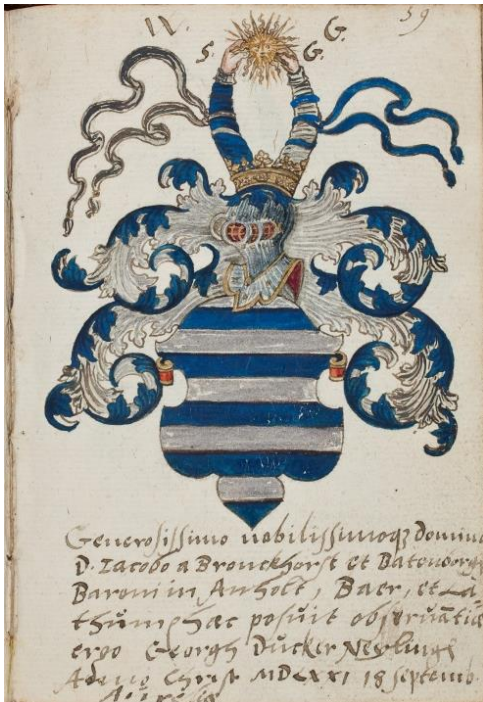 59
W. G.
S. G. G.
Generosissimo nobilissimoq3 domino
D. Iacobo a Bronckhorst et Batenborgh
Baroni in Anholt, Baer, et La
thum hac posuit obseruātiæ
ergo Georgh Dücker
Christ MDCXXI 18 septemb.